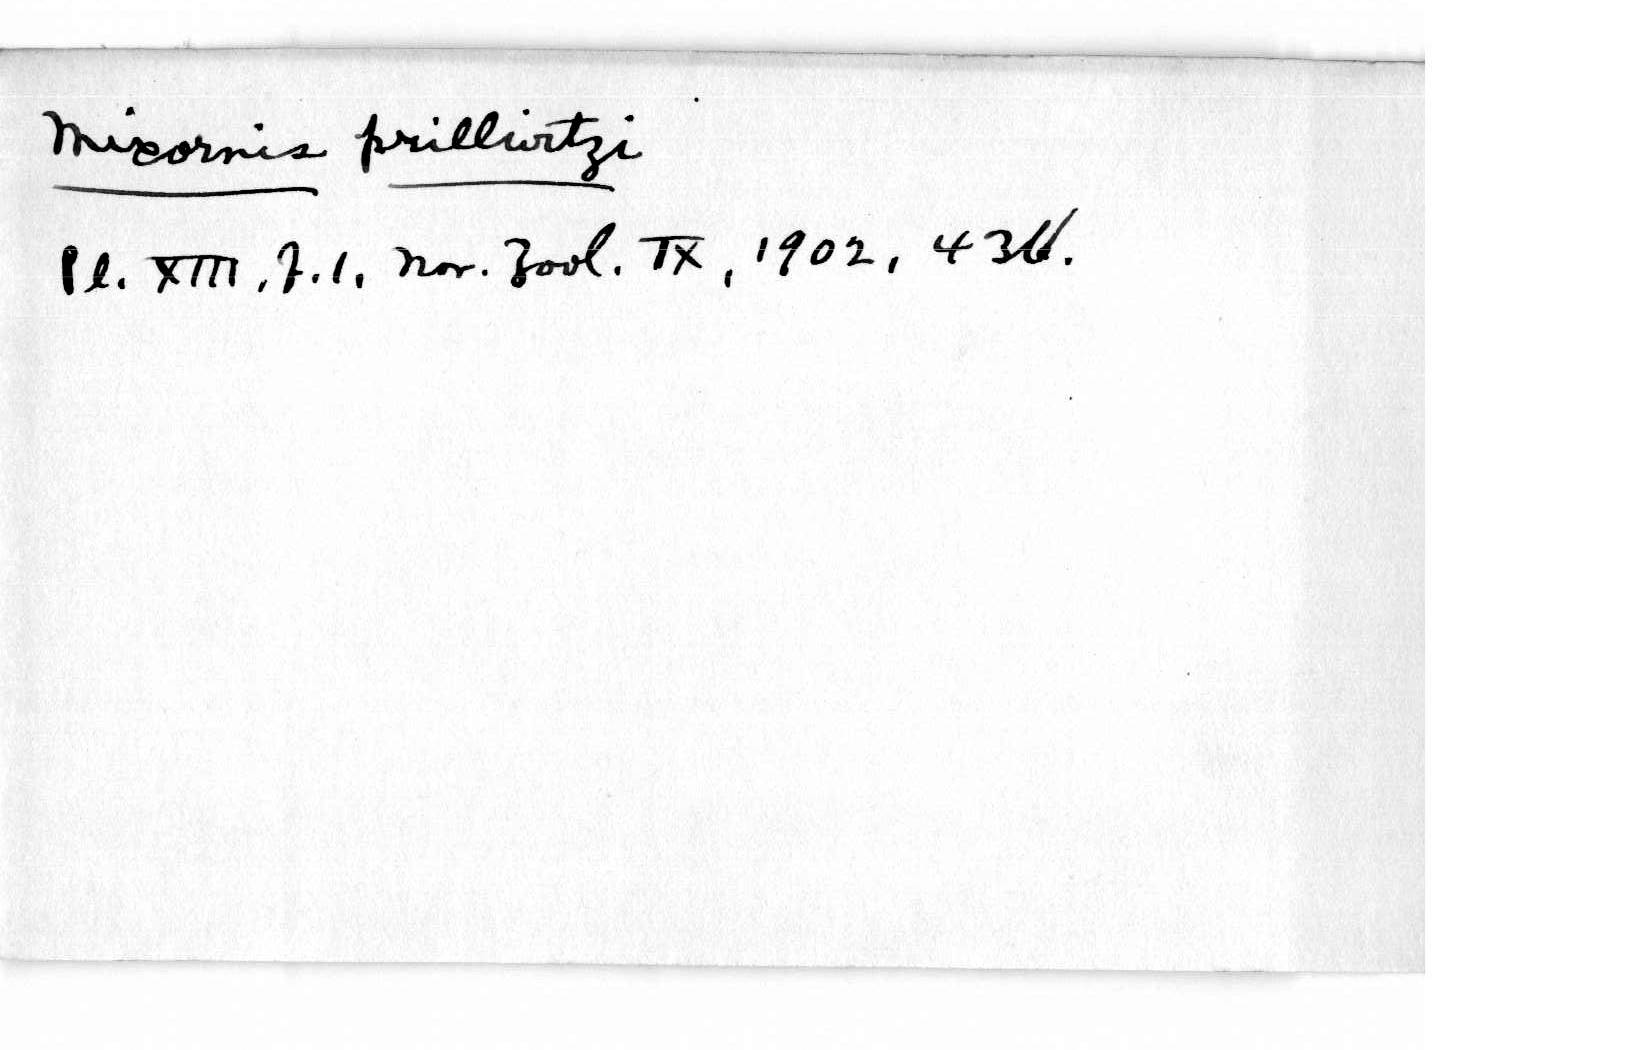 Mixornis prillwitzi
Pl. XIII, f.1, Nov. Zool. IX, 1902,